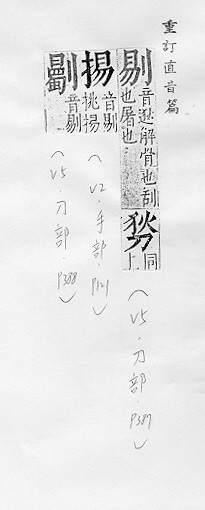 重訂直音篇
剔 音逖解骨也刮
也屠也
同上
（V5．刀部．P387）
掦 音剔
挑掦
（V2．手部．P121）
音剔
（V5．刀部．P388）